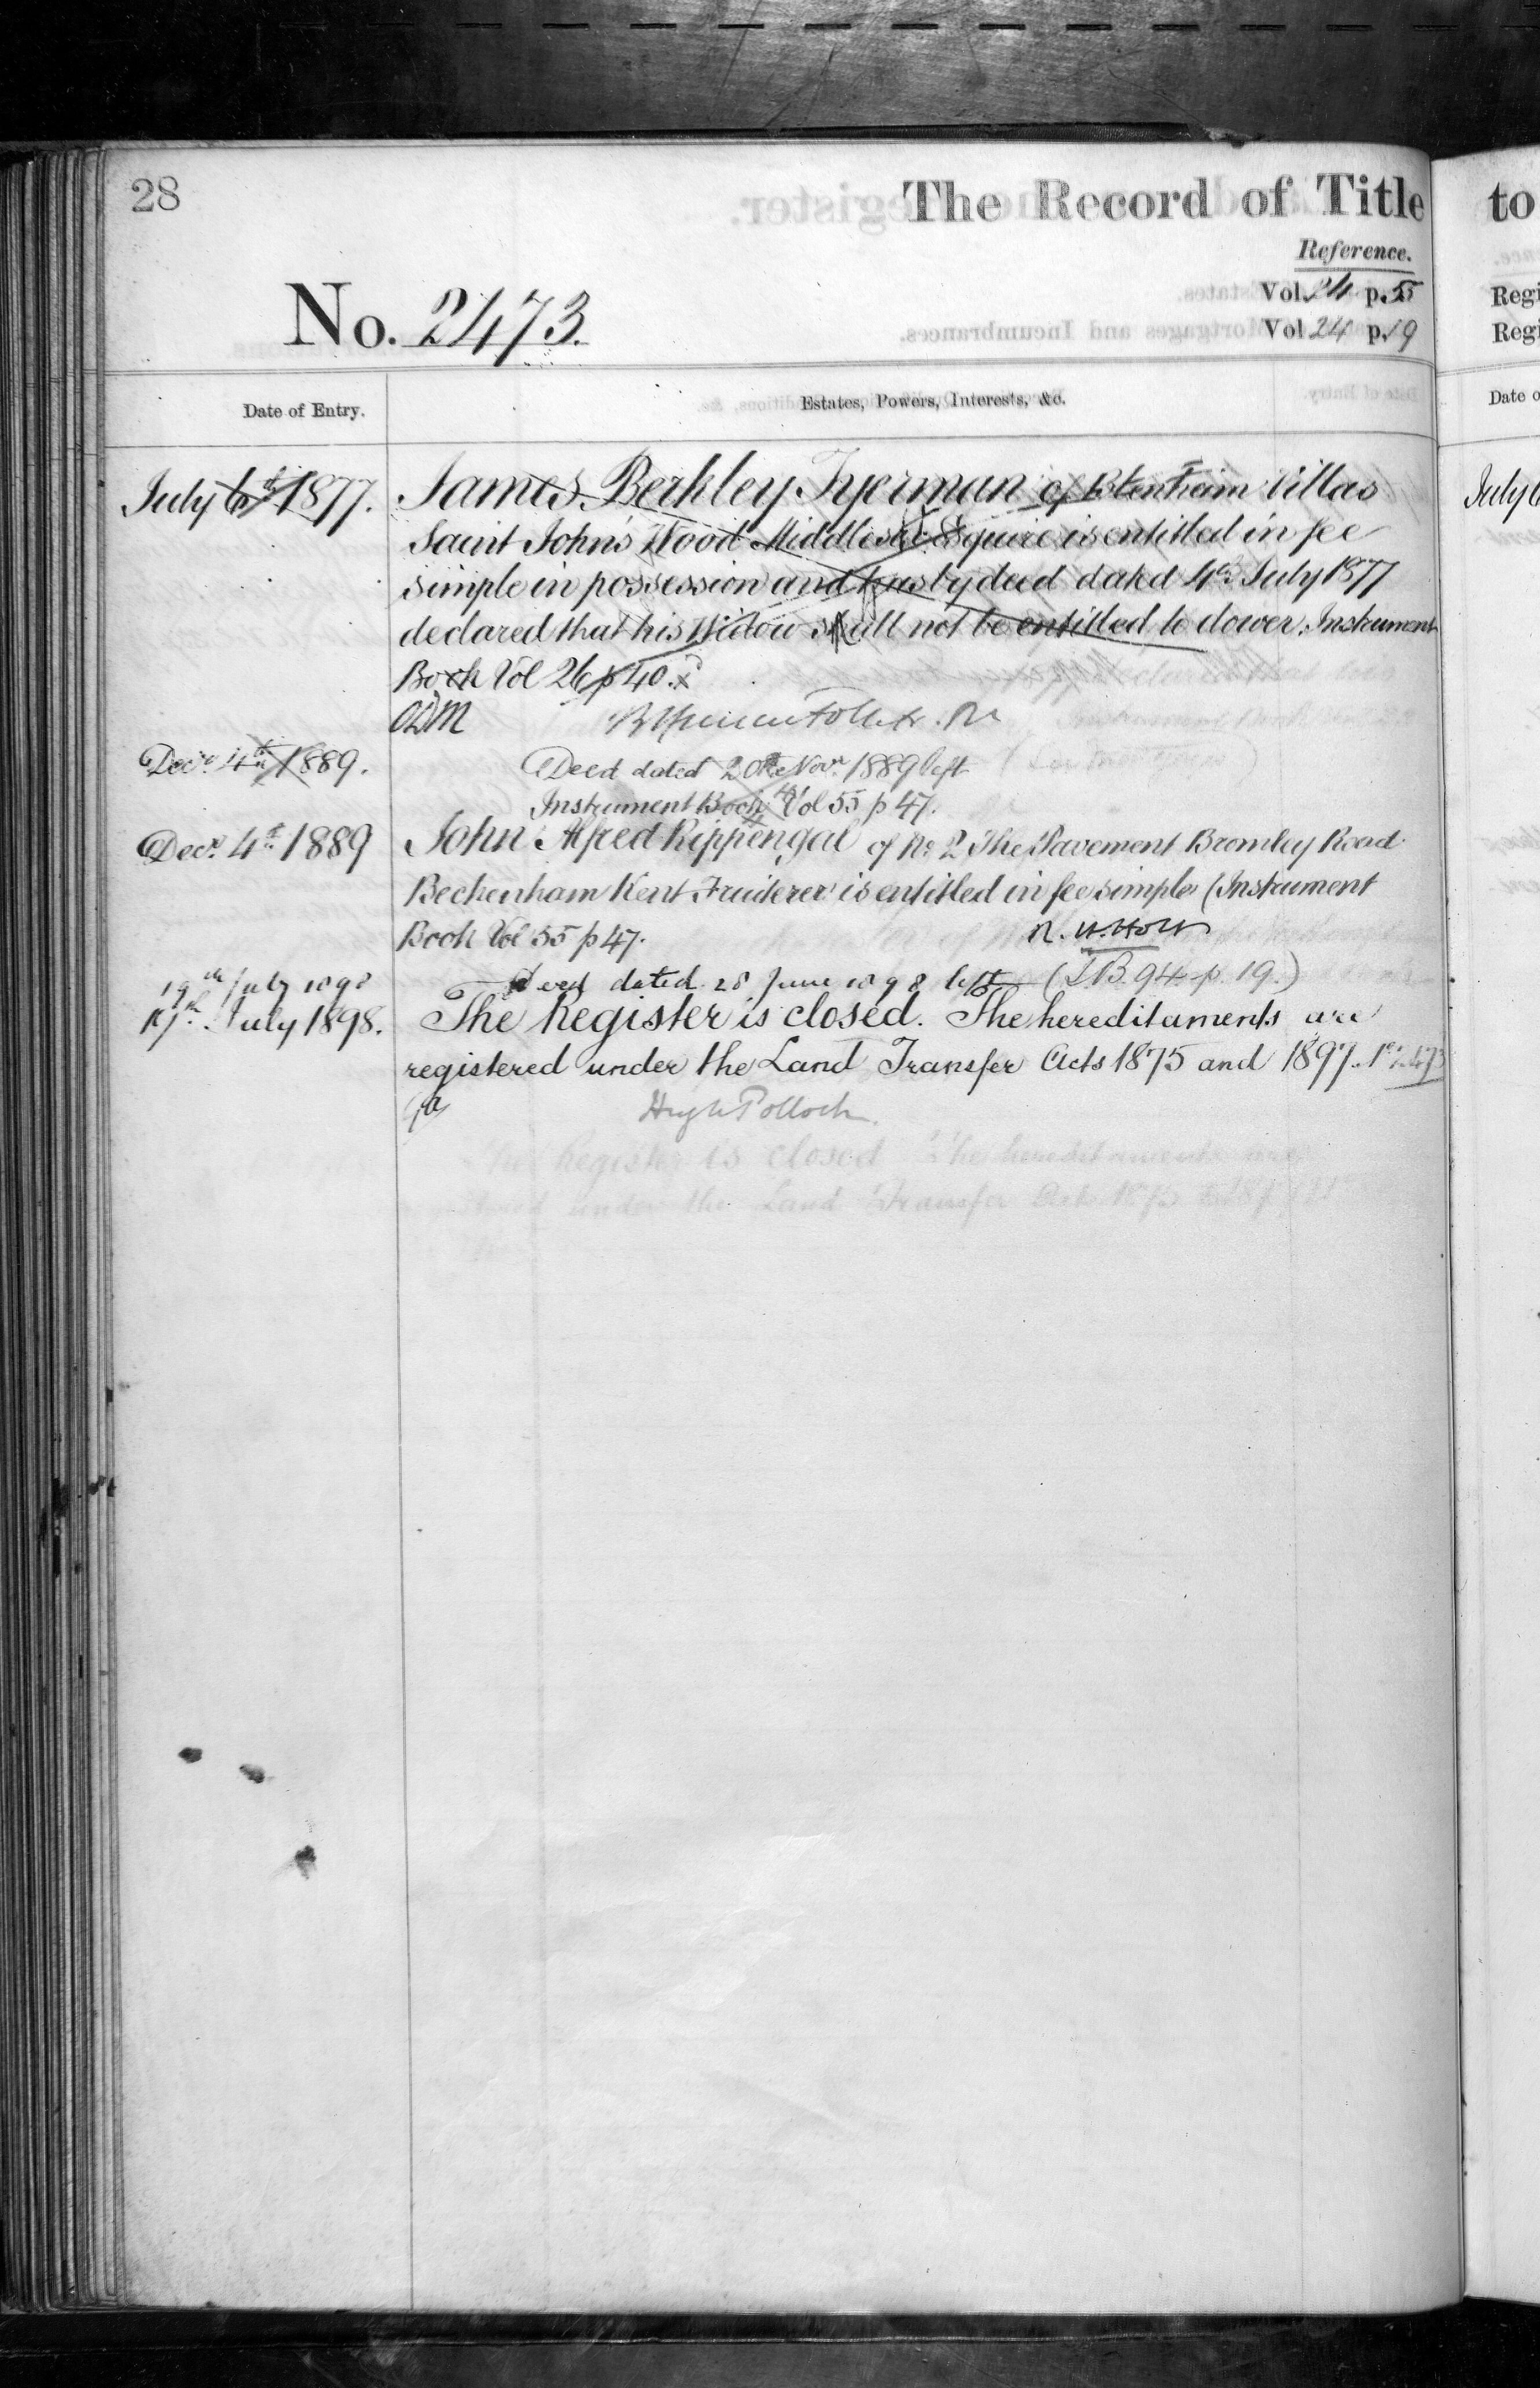 28
The Record of Title
to
Reference.
No. 2473.
Vol. 24 p. 55
Vol 24 p. 19
Regi
Regi
Date of Entry.
Estates, Powers, Interests, &c.
Date o
July 6th 1877.
James Berkley Tyerman of Blenheim Villas
July 6
Saint John's Wood Middlesex Esquire is entitled in fee
simple in possession and has by deed dated 4th July 1877
declared that his Widow shall not be entitled to dower. Instrument
Book Vol 26 p 40.
Decr. 4th 1889.
Deed dated 20th Novr. 1889 left
Instrument Book Vol 55 p 47.
Decr. 4th 1889
John Alfred Rippengal of No 2 The Pavement Bromley Road
Beckenham Kent Fruiterer is entitled in fee simple (Instrument
Book Vol 55 p 47.
R. H. Holt
19th July 1898
Deed dated 28 June 1898 left (I.B. 94 p. 19.)
19th July 1898.
The Register is closed. The hereditaments are
registered under the Land Transfer Acts 1875 and 1897.
Hugh Pollock.